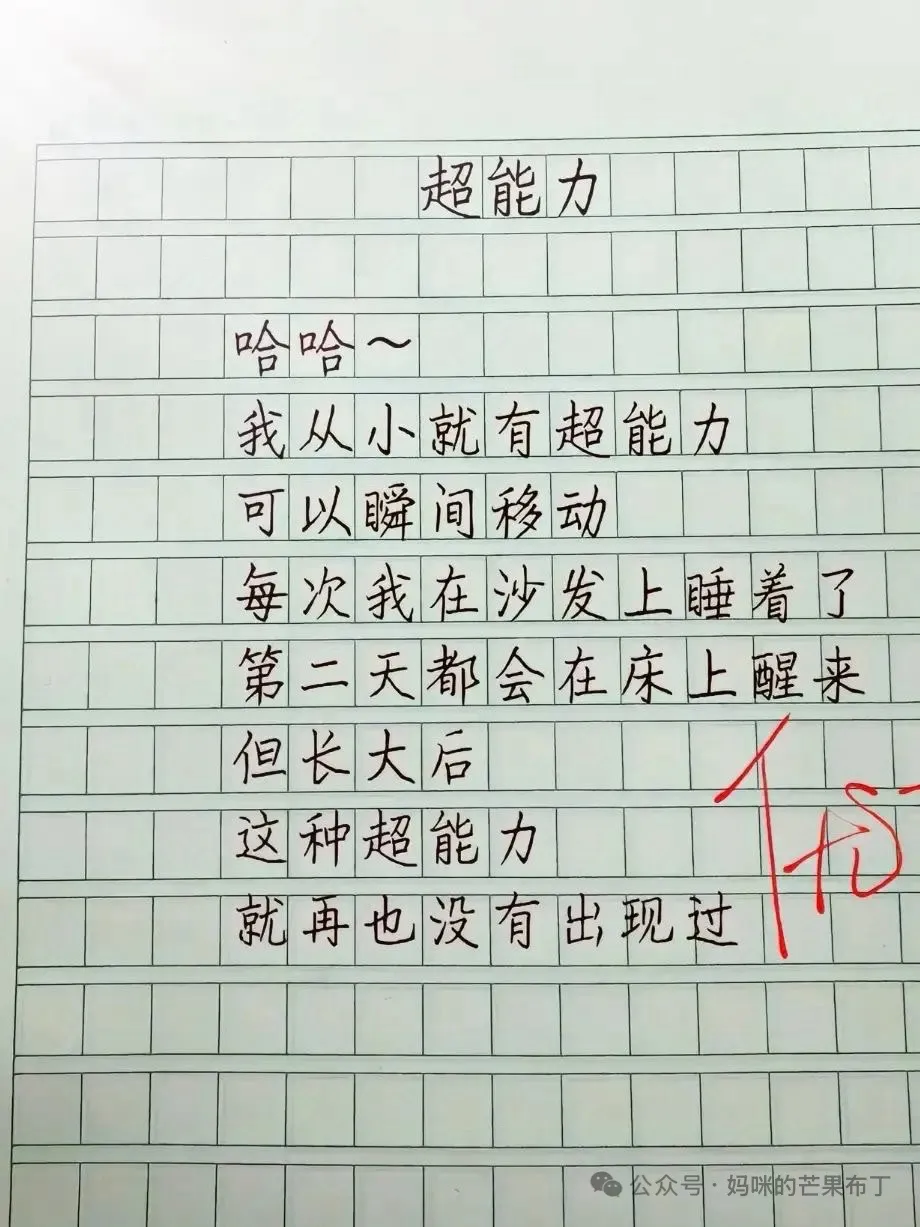 超能力
哈哈～
我从小就有超能力
可以瞬间移动
每次我在沙发上睡着了
第二天都会在床上醒来
但长大后
这种超能力
就再也没有出现过
优
公众号·妈咪的芒果布丁